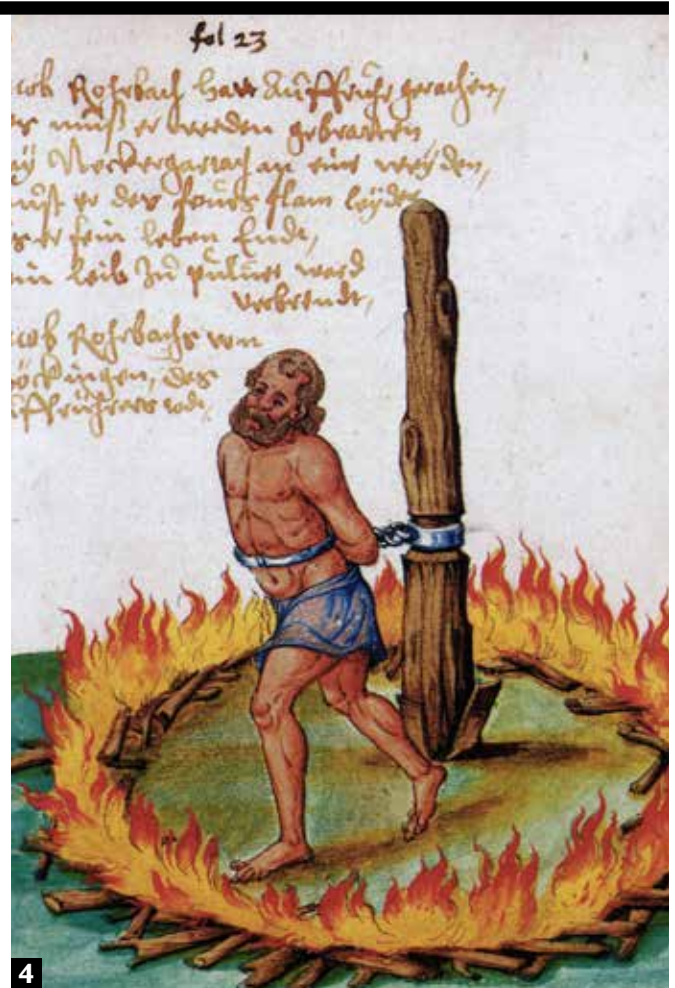 fol 23
cob Rohrbach hatt Auffruhr gerathen,
muß er werden gebratten
Neckergartach an eine weyden,
must er des feurs flam leyden
er sein leben Ende,
sein leib zu pulver ward
verbrendt,
cob Rohrbachs von
öckingen, des
uffrürers tod,
4